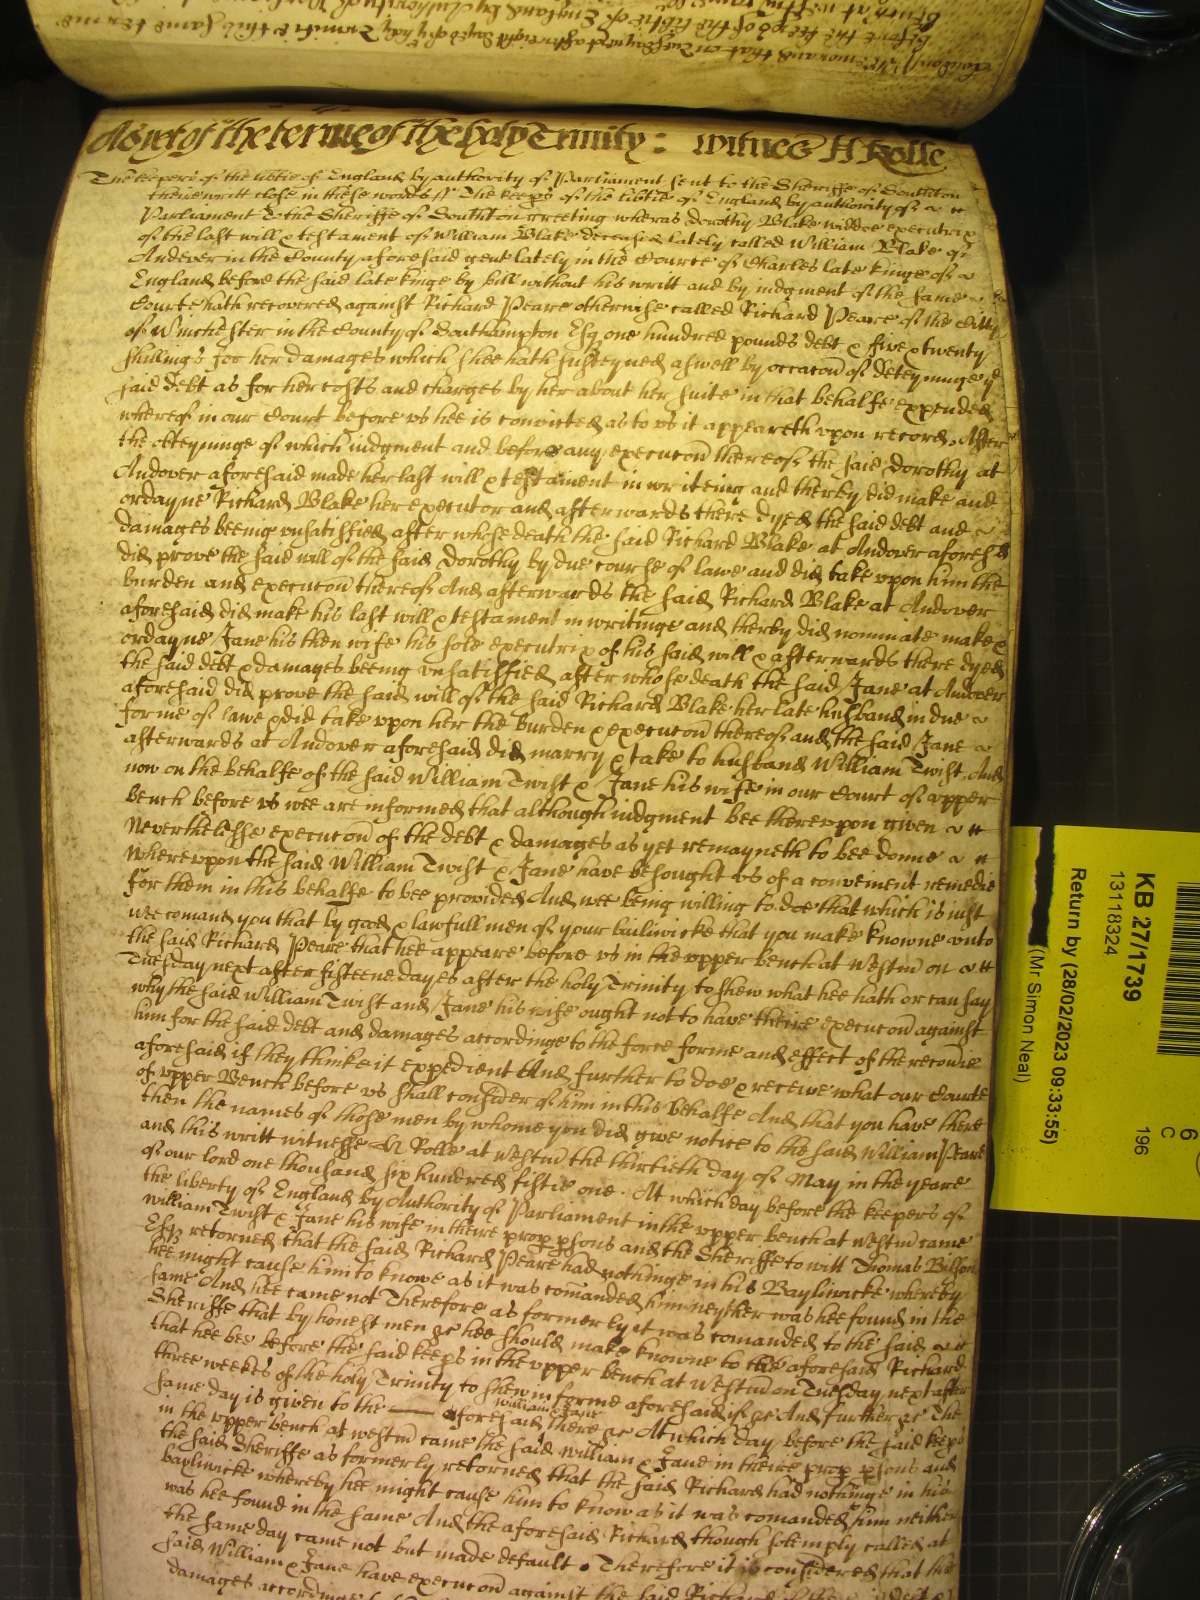 As yet of the terme of the holy Trinity : witnes H Rolle
The keepers of the libtie of England by authority of Parliament sent to the Sheriffe of Southton
theire writt close in these words // The keeps of the libtie of England by authority of
Parliament To the Sheriffe of Southton greeting wheras Dorothy Blake widdow executrix
of the last will & testament of William Blake deceased lately called William Blake of
Andever in the County aforesaid gent lately in the Courte of Charles late kinge of
England before the said late kinge by bill without his writt and by iudgment of the same
Courte hath recovered against Richard Peare otherwise called Richard Peare of the Citty
of Winchester in the County of Southampton Esq one hundred pounds debt & five & twenty
shillings for her damages which shee hath susteyned aswell by occacon of deteyninge ye
said debt as for her costs and charges by her about her suite in that behalfe expended
whereof in our Court before vs hee is convicted as to vs it appeareth vpon record. After
the obteyninge of which iudgment and before any execucon thereof the said Dorothy at
Andover aforesaid made her last will & testament in writeing and therby did make and
ordayne Richard Blake her executor and afterwards there dyed the said debt and
damages beeing vnsatisfied after whose death the said Richard Blake at Andover aforesd
did prove the said will of the said Dorothy by due course of lawe and did take vpon him the
burden and execucon thereof And afterwards the said Richard Blake at Andover
aforesaid did make his last will & testament in writinge and therby did nominate make &
ordayne Jane his then wife his sole executrix of his said will & afterwards there dyed
the said debt & damages beeing vnsatisfied after whose death the said Jane at Andover
aforesaid did prove the said will of the said Richard Blake her late husband in due
forme of lawe & did take vpon her the burden & execucon thereof and the said Jane
afterwards at Andover aforesaid did marry & take to husband William Twist. And
now on the behalfe of the said William Twist & Jane his wife in our Court of vpper
bench before vs wee are informed that although iudgment bee therevpon given
Neverthelesse execucon of the debt & damages as yet remayneth to bee donne
Wherevpon the said William Twist & Jane have besought vs of a convenient remedie
for them in this behalfe to bee provided And wee being willing to doe that which is iust
wee comand you that by good & lawfull men of your bailiwicke that you make knowne vnto
the said Richard Peare that hee appeare before vs in the vpper bench at Westm on
Tuesday next after fifteene dayes after the holy Trinity to shew what hee hath or can say
why the said William Twist and Jane his wife ought not to have theire execucon against
him for the said debt and damages accordinge to the force forme and effect of the recovie
aforesaid if they thinke it expedient And further to doe & receive what our Courte
of vpper Bench before vs shall consider of him in this behalfe And that you have there
then the names of those men by whome you did give notice to the said William Peare
and this writt witnesse H Rolle at Westm the thirtieth day of May in the yeare
of our lord one thousand six hundred fiftie one. At which day before the keepers of
the liberty of England by Authority of Parliament in the vpper bench at Westm came
William Twist & Jane his wife in theire prop psons and the Sheriffe to witt Thomas Bilson
Esqr retorned that the said Richard Peare had nothinge in his Bayliwicke whereby
hee might cause him to knowe as it was comanded him neyther was hee found in the
same And hee came not Therefore as formerly it was comanded to the said
Sheriffe that by honest men &c hee should make knowne to the aforesaid Richard
that hee bee before the said keeps in the vpper bench at Westm on Tuesday next after
three weekes of the holy Trinity to shew in forme aforesaid if &c And further &c The
same day is given to the —— aforesaid William & Jane there &c At which day before the said keeps
in the vpper bench at westm came the said William & Jane in theire prop psons and
the said Sheriffe as formerly retorned that the said Richard had nothinge in his
bayliwicke whereby hee might cause him to know as it was comanded him neither
was hee found in the same And the aforesaid Richard though solemply called at
the same day came not but made default. Therefore it is considered that the
said William & Jane have execucon against the said Richard
damages accordinge
KB 27/1739
13118324
Return by (28/02/2023 09:33:55)
(Mr Simon Neal)
6
C
196